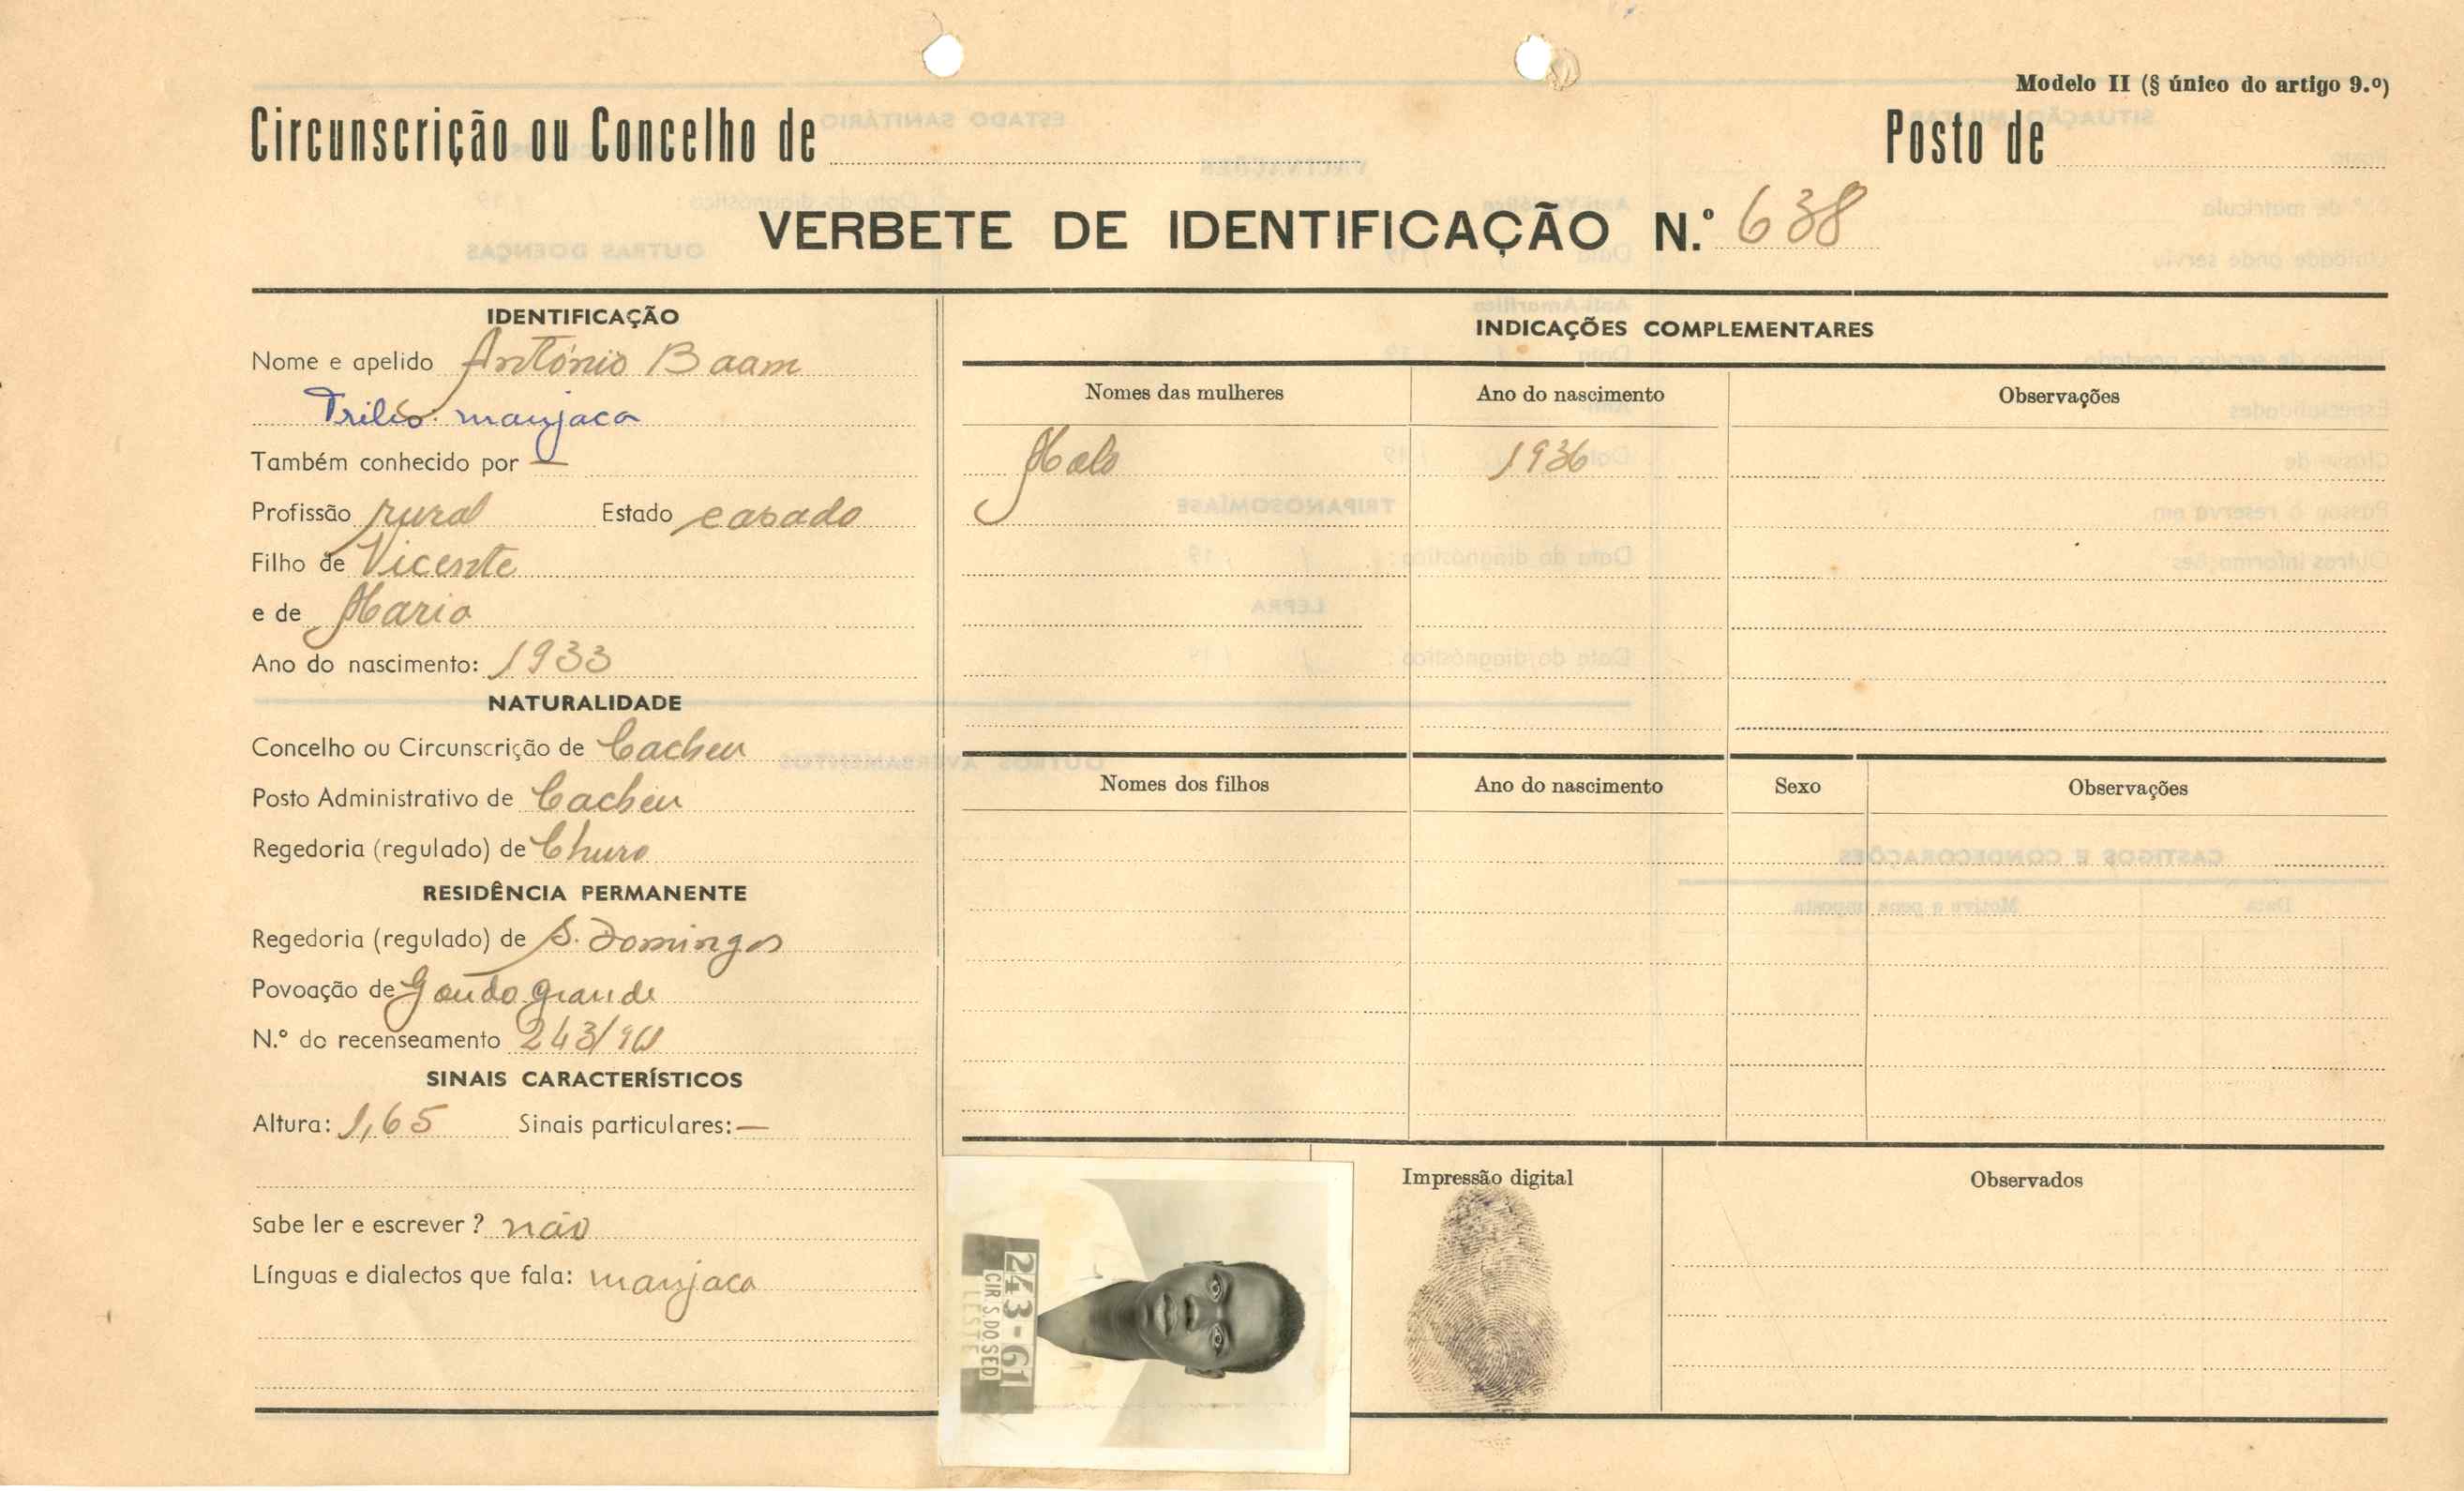 Modelo II (§ único do artigo 9.º)
Circunscrição ou Concelho de
Posto de
VERBETE DE IDENTIFICAÇÃO N.º 638
IDENTIFICAÇÃO
Nome e apelido António Baam
Tribo manjaca
Também conhecido por —
Profissão rural Estado casado
Filho de Vicente
e de Maria
Ano do nascimento: 1933
NATURALIDADE
Concelho ou Circunscrição de Cacheu
Posto Administrativo de Cacheu
Regedoria (regulado) de Churo
RESIDÊNCIA PERMANENTE
Regedoria (regulado) de S. Domingos
Povoação de grande
N.º do recenseamento 243/
SINAIS CARACTERÍSTICOS
Altura: 1,65 Sinais particulares: —
Sabe ler e escrever? não
Línguas e dialectos que fala: manjaca
INDICAÇÕES COMPLEMENTARES
Nomes das mulheres Ano do nascimento Observações
1936
Nomes dos filhos Ano do nascimento Sexo Observações
243-61
CIR S.DO SED
LESTE
Impressão digital
Observados